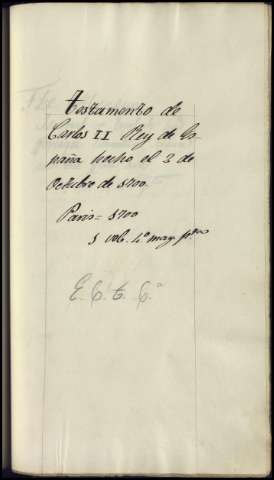 Testamento de
Carlos II Rey de Es-
paña hecho el 2 de
Octubre de 1700.
Paris = 1700
1 vol. 4.º may. pta
E. C. t. C.ª